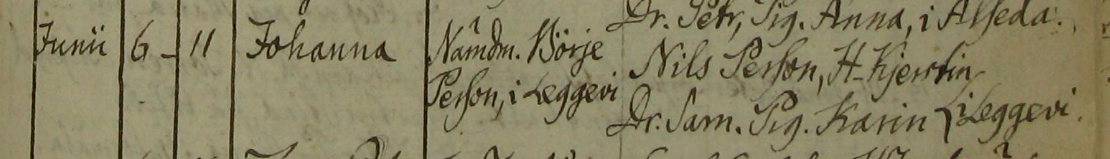 Dr. Petr, Pig. Anna, i Alseda.
Junii 6 - 11 Johanna Nämdm. Börje Nils Person, H. Kjerstin
Person, i Leggevi Dr. Sam. Pig. Karin i Leggevi.